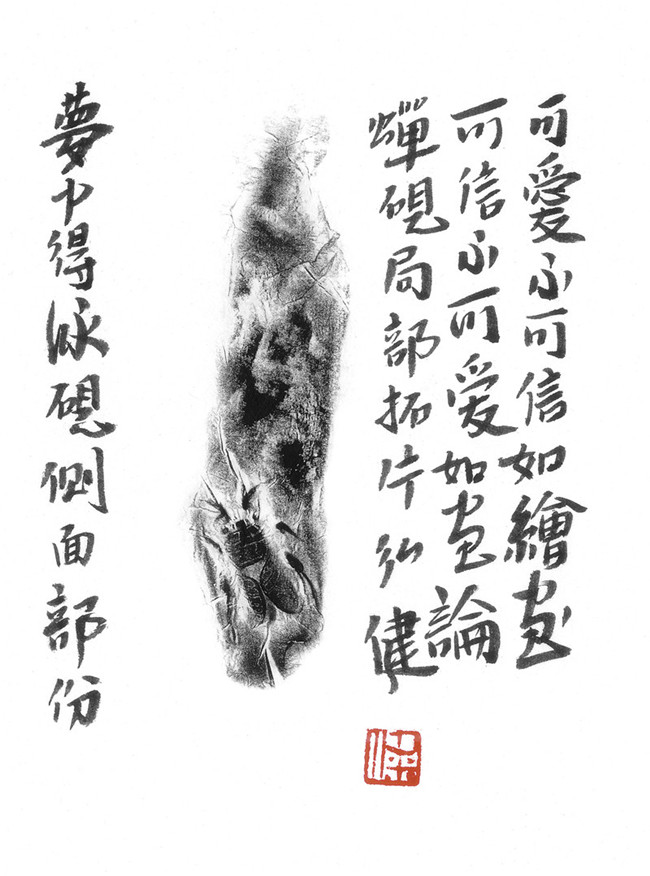 可愛不可信如繪畫
可信不可愛如畫論
蟬硯局部拓片弘健
夢中得泳硯側面部份